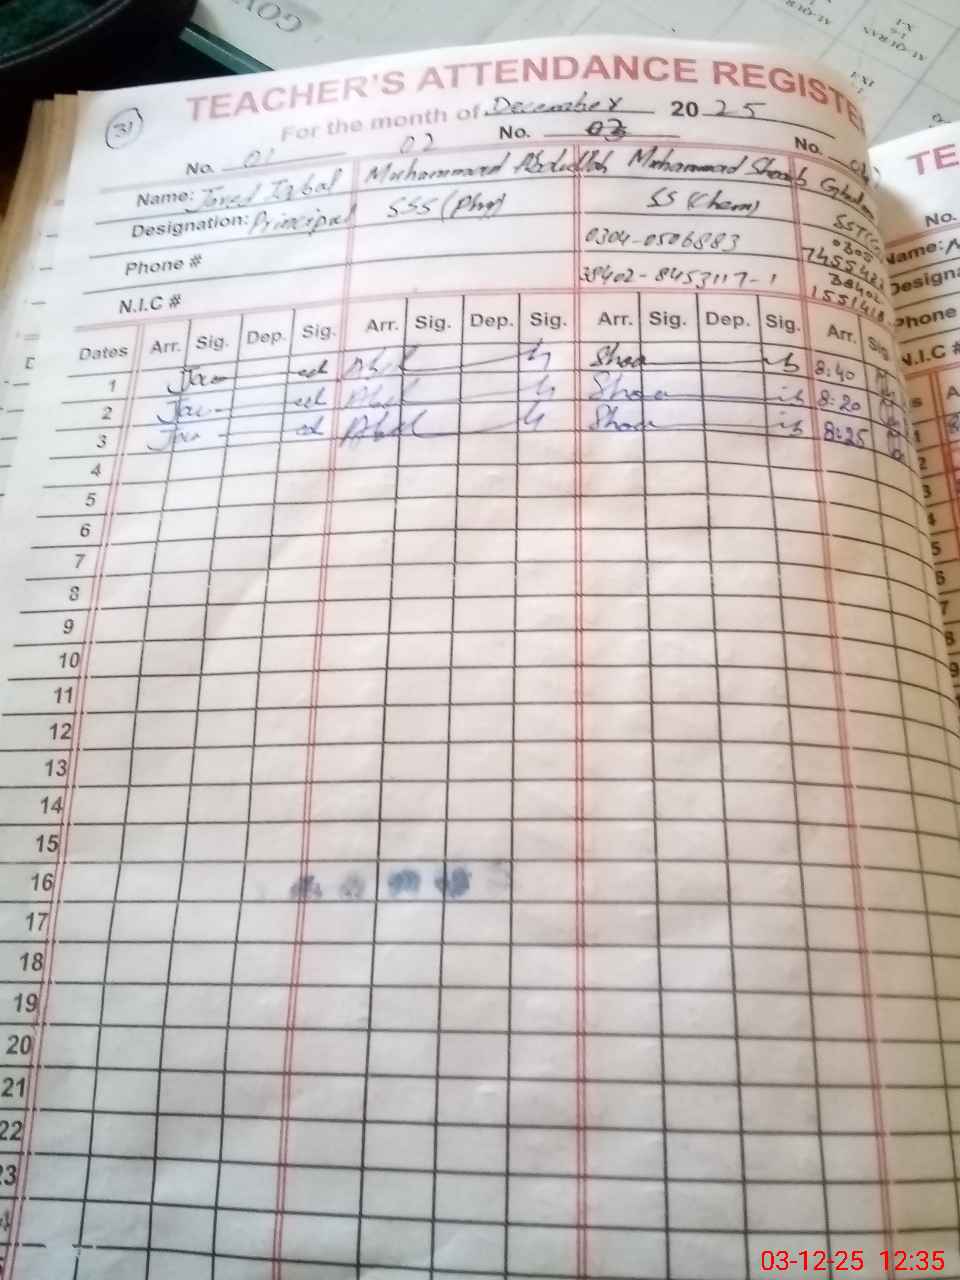 31
TEACHER'S ATTENDANCE REGISTE
For the month of December 2025
No. 01 02 No. 03 No.
Name: Javed Iqbal Muhammad Abdullah Muhammad Shoaib Ghulam
Designation: Principal SSS (Phy) SS (Chem)
Phone # 0304-0506883 0305
7455482
N.I.C # 38402-8453117-1 38402
Dates Arr. Sig. Dep. Sig. Arr. Sig. Dep. Sig. Arr. Sig. Dep. Sig. Arr. Sig
1 Jav ed Abd h Shoa ib 8:40
2 Jav ed Abd h Shoa ib 8:20
3 Jav ed Abd h Shoa ib 8:25
4
5
6
7
8
9
10
11
12
13
14
15
16
17
18
19
20
21
22
23
TE
No.
Name:
Designa
Phone
N.I.C #
03-12-25 12:35